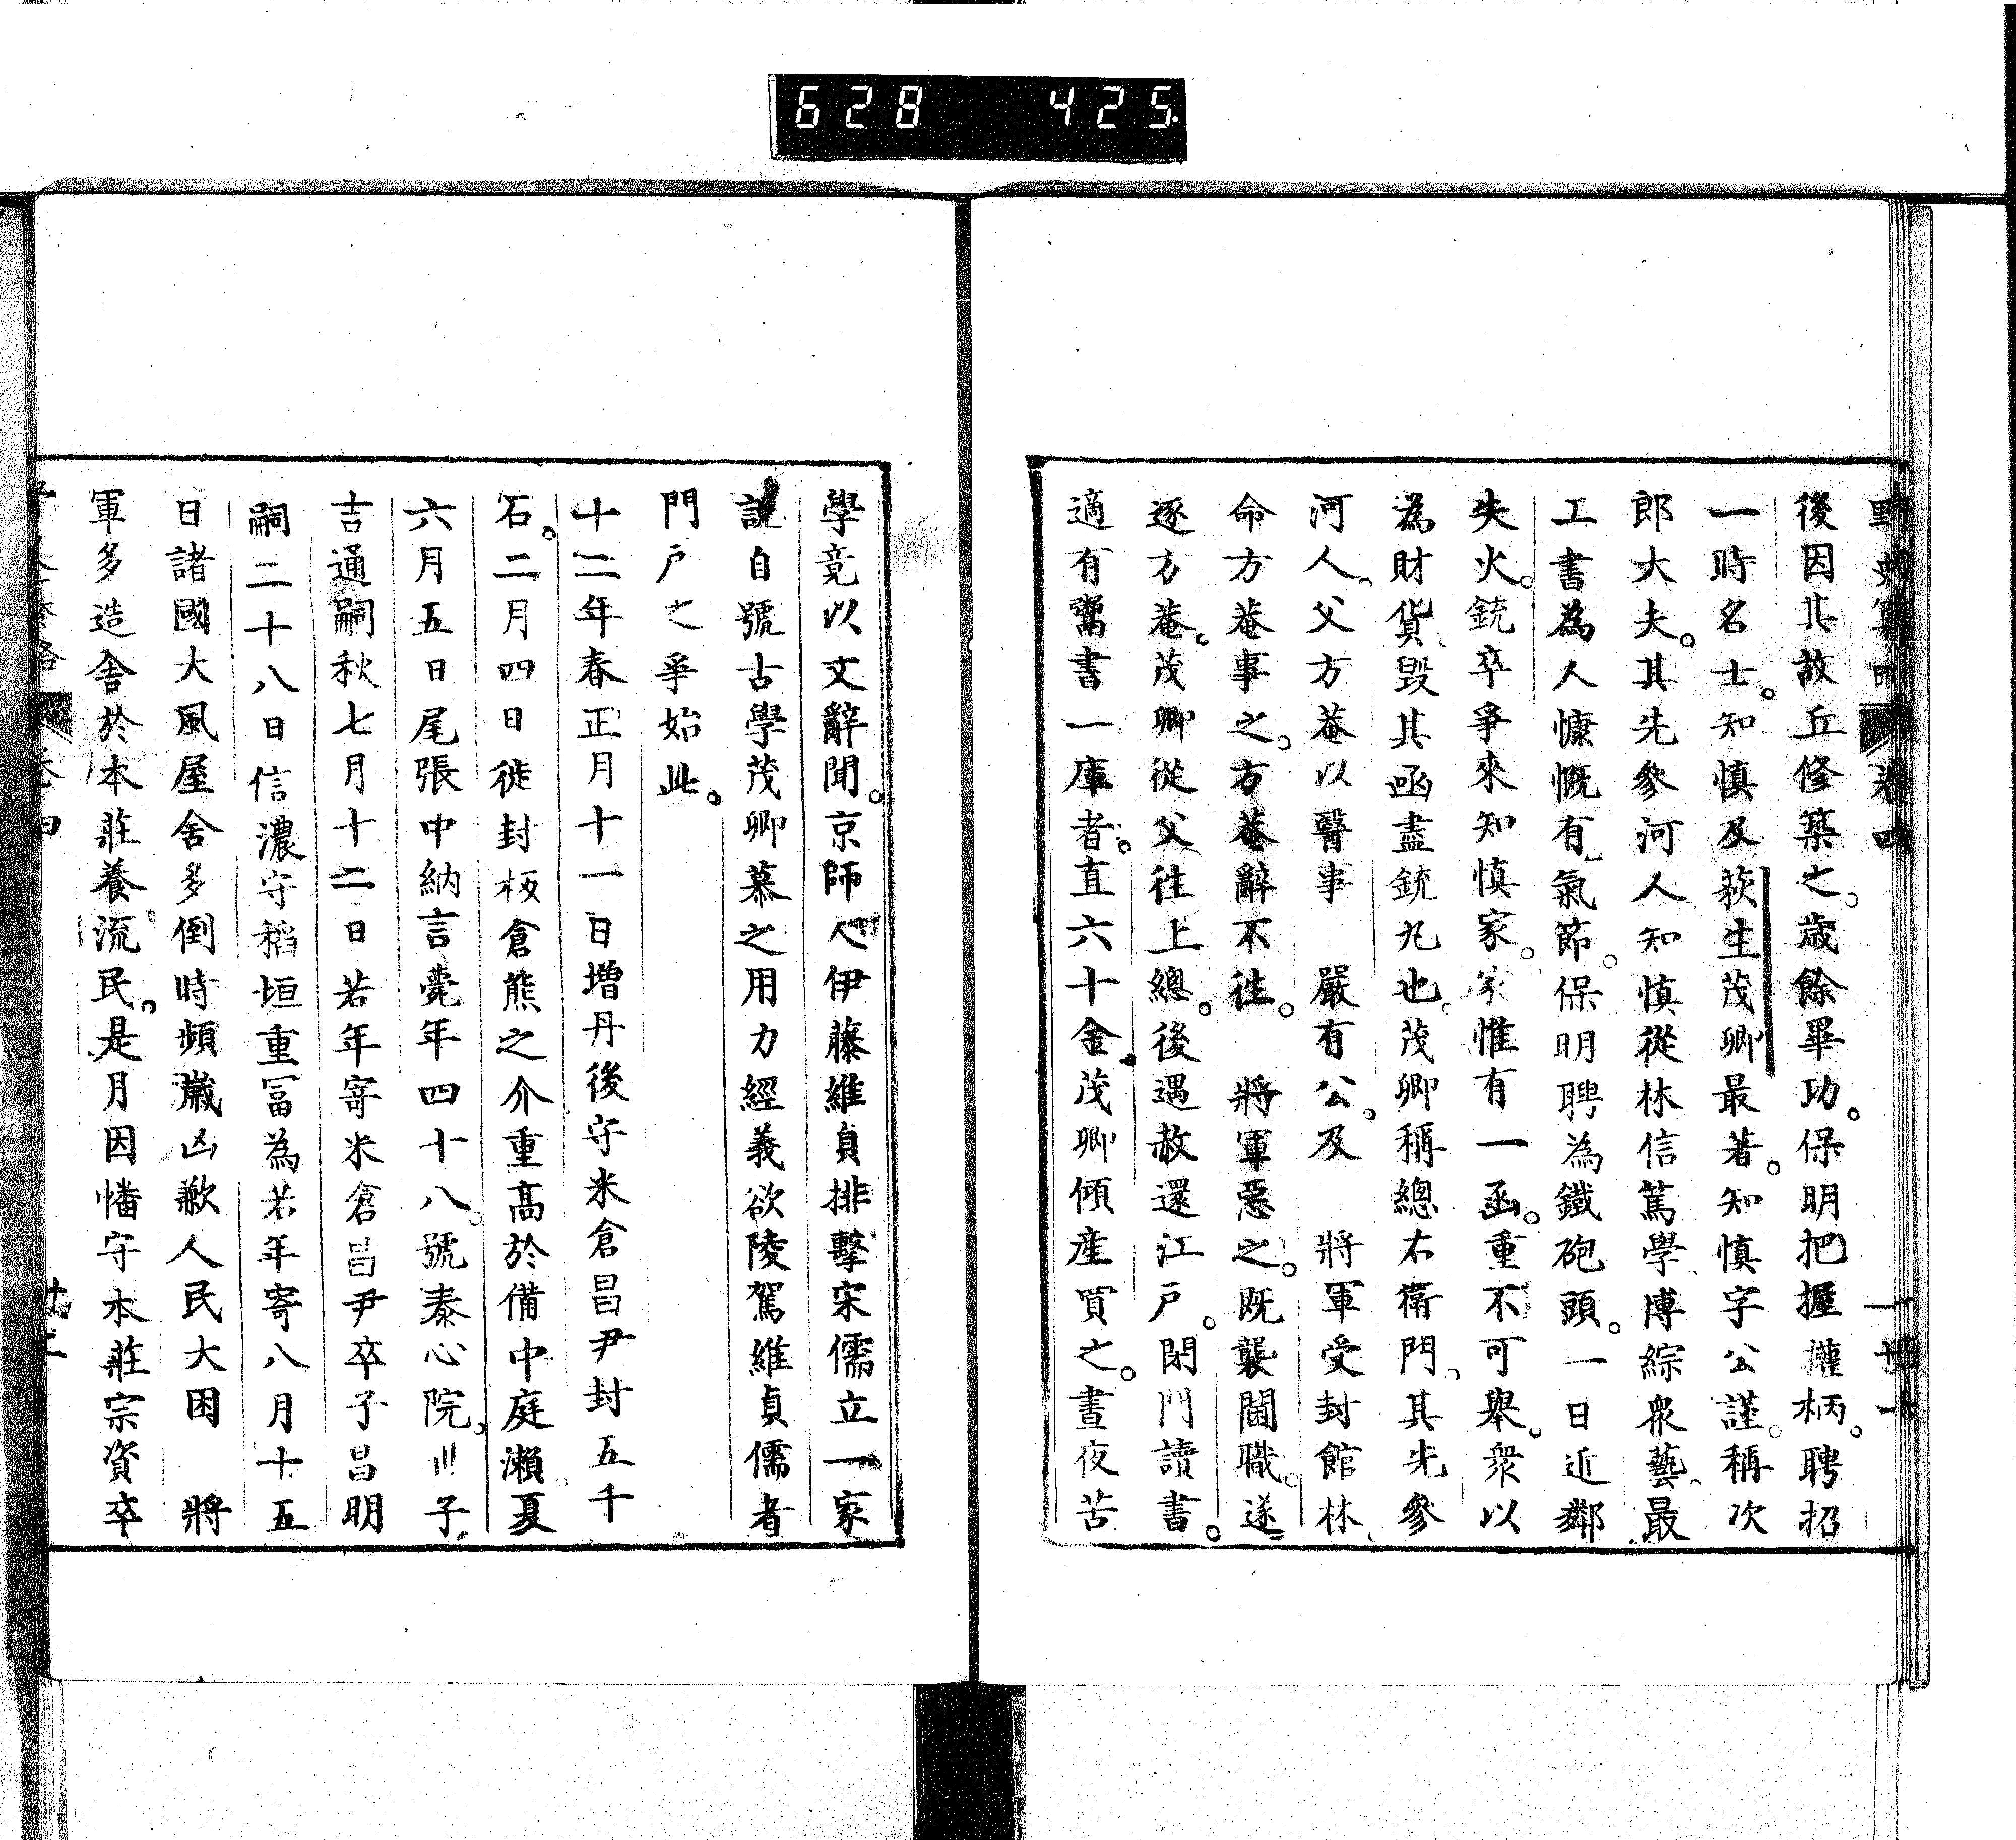 628 425
後因其故丘修築之。歲餘畢功。保明把握權柄。聘招
一時名士。知慎及荻生茂卿最著。知慎字公謹。稱次
郎大夫。其先參河人知慎從林信篤學、博綜衆藝、最
工書為人慷慨有氣節。保明聘為鐵砲頭。一日近鄰
失火。銃卒爭來知慎家。家惟有一函。重不可舉。衆以
為財貨、毀其函盡銃丸也。茂卿稱總右衛門、其先參
河人、父方菴以醫事　嚴有公、及　將軍受封館林、
命方菴事之。方菴辭不往。　將軍惡之。既襲閫職。遂
逐方菴。茂卿從父往上總。後遇赦還江戶。閉門讀書。
適有鬻書一庫者。直六十金。茂卿傾産買之。晝夜苦
學竟以文辭聞。京師人伊藤維貞排擊宋儒立一家
説自號古學茂卿慕之用力經義欲陵駕維貞儒者
門戶之爭始此。
十二年春正月十一日增丹後守米倉昌尹封五千
石。二月四日徙封板倉熊之介重高於備中庭瀬夏
六月五日尾張中納言薨年四十八。號泰心院。川子
吉通嗣秋七月十二日若年寄米倉昌尹卒子昌明
嗣二十八日信濃守稻垣重冨為若年寄八月十五
日諸國大風屋舍多倒時頻歳凶歉人民大困　將
軍多造舍於本莊養流民。是月因幡守本莊宗資卒